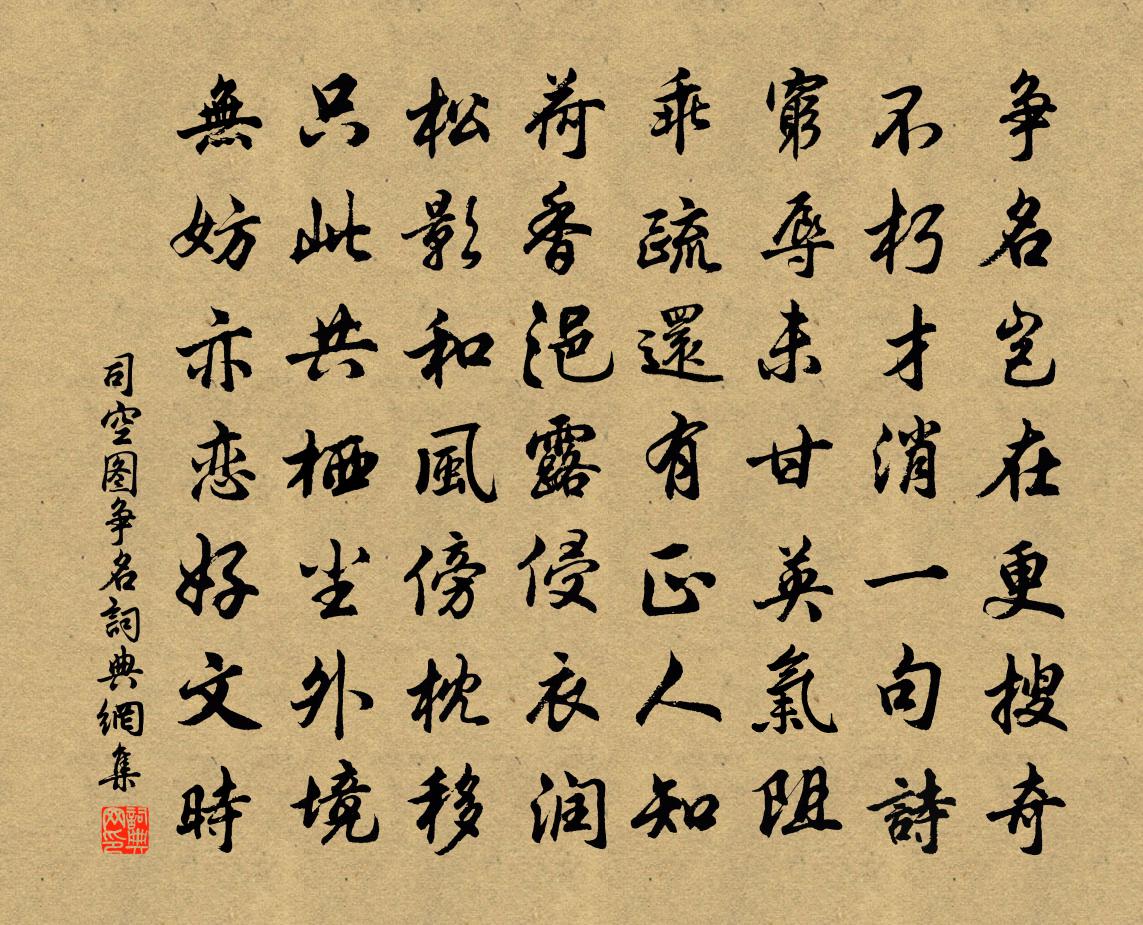 争名岂在更搜奇
不朽才消一句詩
窮辱未甘英氣阻
乖疏還有正人知
荷香浥露侵衣润
松影和風傍枕移
只此共栖尘外境
無妨亦恋好文時
司空图争名詞典網集
詞典网印